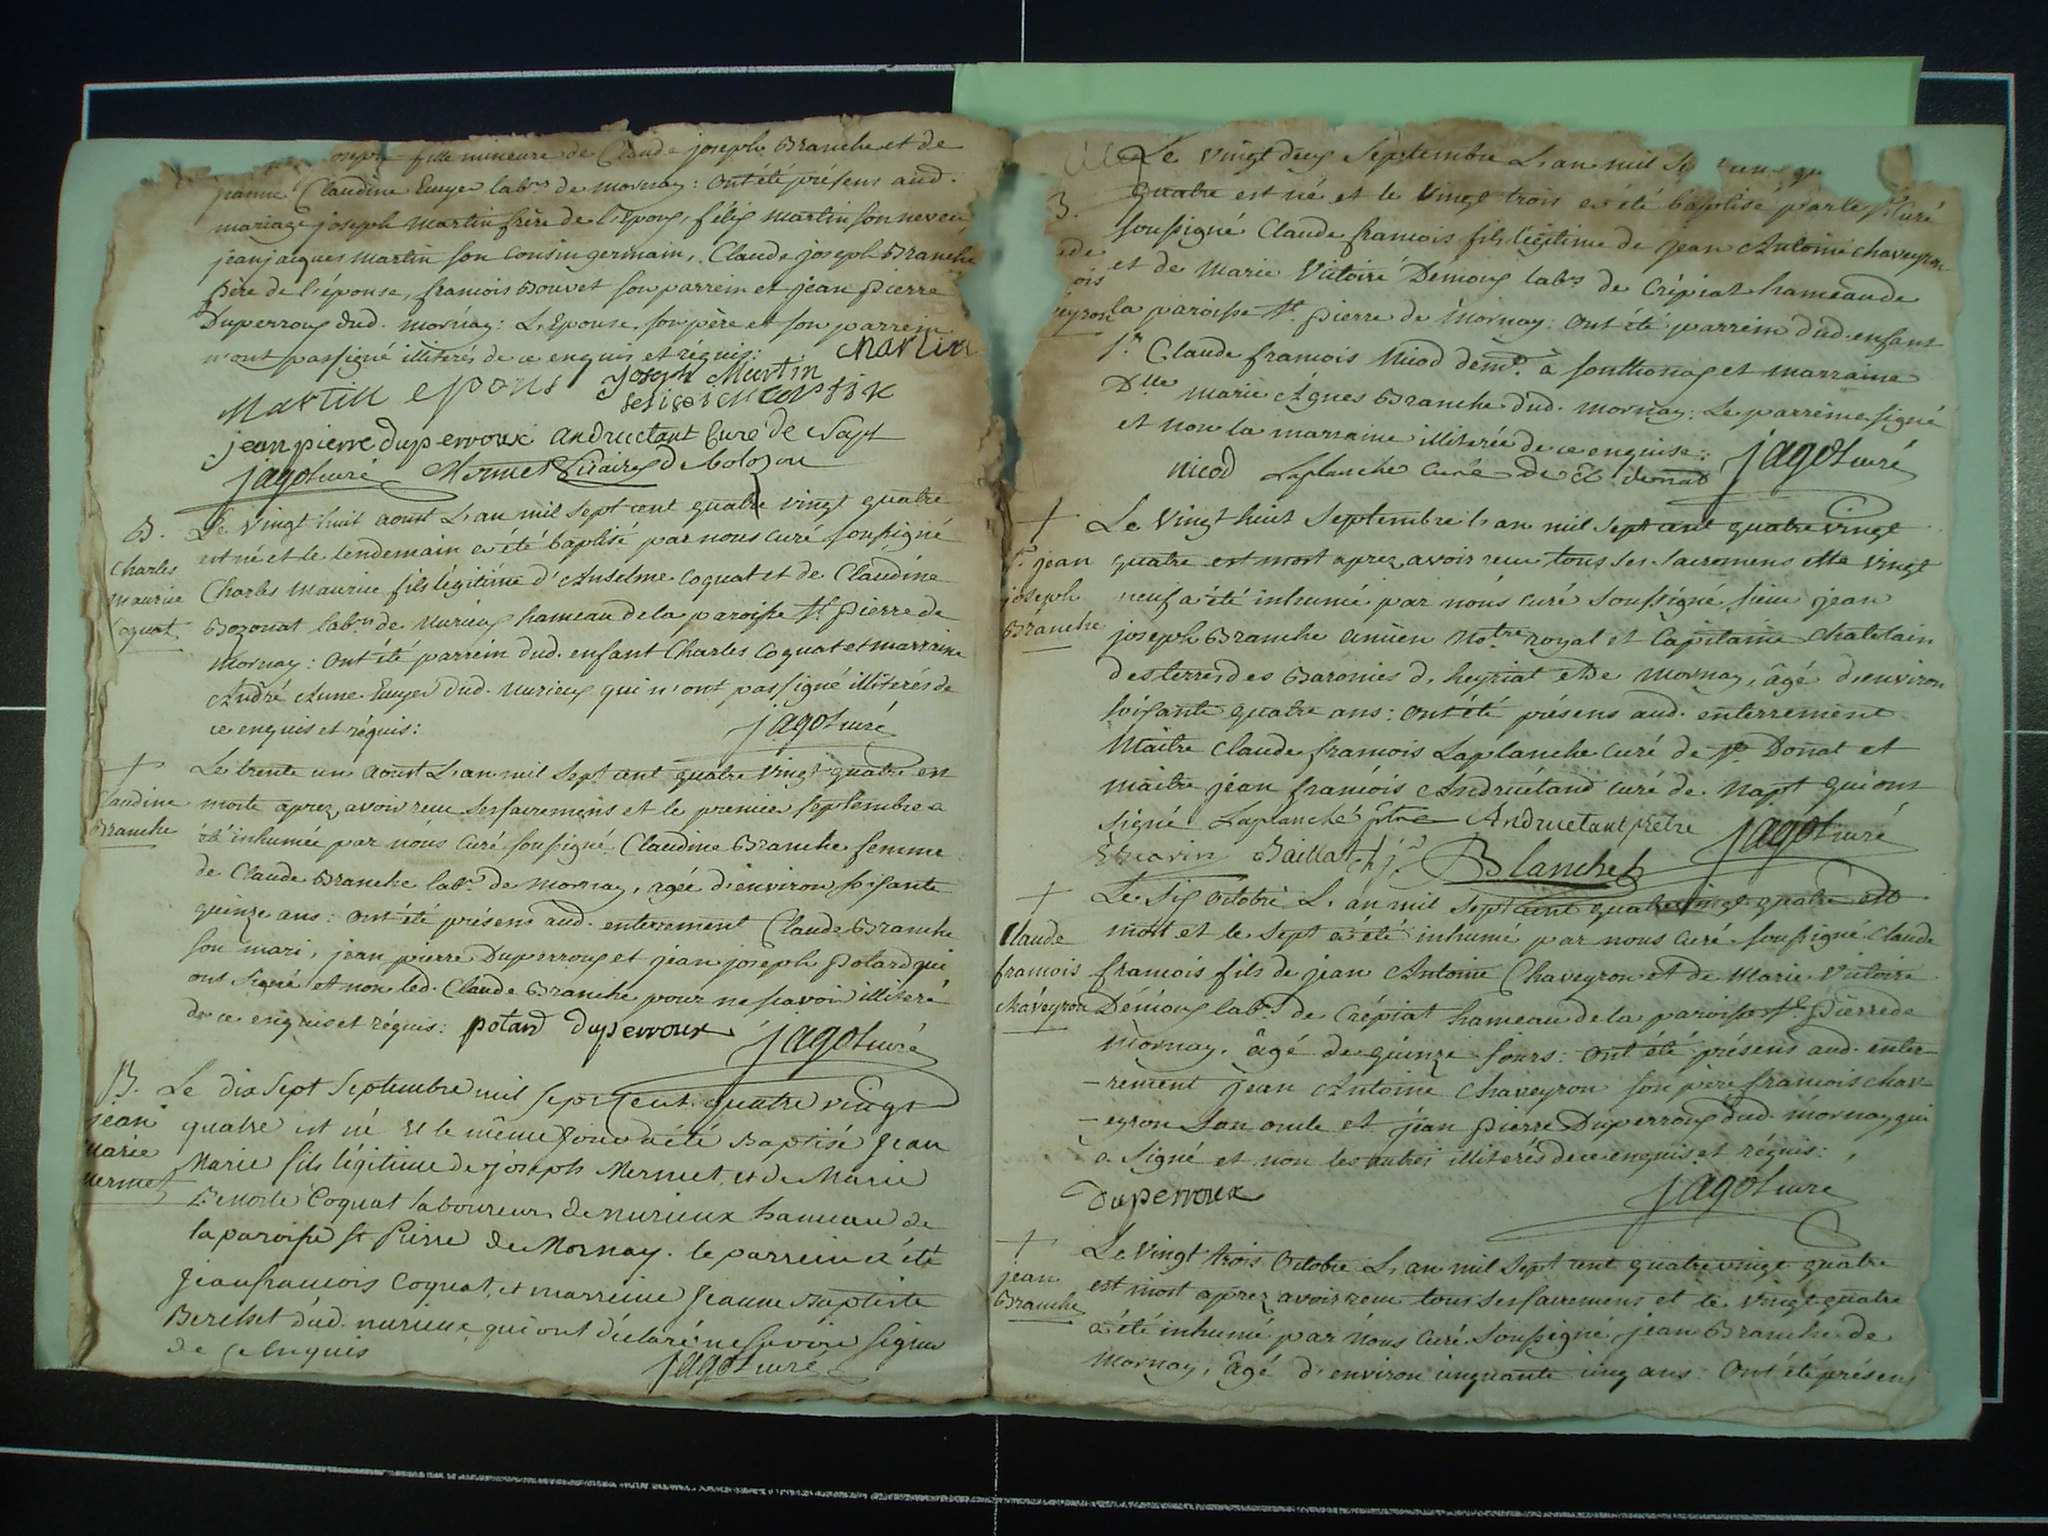 fille mineure de Claude joseph Branche et de
jeanne Claudine Emyer labrs de mornay: Ont été présens aud.
mariage joseph Martin frère de l'Epoux, félix Martin son neveu
jean jacques Martin son cousin germain, Claude joseph Branche
père de l'épouse, francois Bouvet son parrein et jean pierre
Duperroux dud. mornay: L'Epouse, son père et son parrein
n'ont pas signé illiterés de ce enquis et réquis: Martin
Martin epous joseph Martin
jean pierre duperroux andruetant Curé de Napt
jagot curé Mermet Vicaire de bolozon
B. Le Vingt huit aoust L'an mil sept cent quatre vingt quatre
est né et le lendemain a été baptisé par nous curé soussigné
Charles Charles Maurice fils légitime d'Anselme Coquat et de Claudine
Maurice
Coquat Bozonat labrs de Nurieux hameau de la paroisse St. pierre de
Mornay: Ont été parrein dud. enfant Charles Coquat et marraine
André Anne Emyer dud. Nurieux qui n'ont pas signé illiterés de
ce enquis et réquis: jagot curé
† Le trente un aoust L'an mil sept cent quatre vingt quatre est
Claudine morte aprez avoir reçu ses sacremens et le premier septembre a
Branche été inhumée par nous curé soussigné Claudine Branche femme
de Claude Branche labr. de Mornay, agée d'environ soisante
quinze ans: ont été présens aud. enterrement Claude Branche
son mari, jean pierre Duperroux et jean joseph Potard qui
ont signé et non led. Claude Branche pour ne scavoir illiteré
de ce enquis et réquis: potard duperroux jagot curé
B. Le dix Sept Septembre mil sept cent quatre vingt
jean quatre est né et le même jour a été Baptisé Jean
Marie Marie fils légitime de joseph Mermet, et de Marie
Mermet
Coquat laboureurs de nurieux hameau de
la paroisse st Pierre de Mornay. le parrein a été
Jean francois Coquat, et marreine Jeanne Baptiste
dud. nurieux qui ont déclaré ne scavoir signer
de ce Enquis jagot curé
Le vingt deux Septembre L'an mil
B. quatre est né et le Vingt trois a été baptisé par le Sr Curé
soussigné Claude francois fils légitime de jean Antoine Chaveyron
et de Marie Victoire Demoux labrs de Crépiat hameau de
la paroisse St. pierre de Mornay: Ont été parrein dud. enfant
Sr. Claude francois Nicod demt. à Sonthonax et marraine
Dlle Marie Agnes Branche dud. Mornay: Le parrein a signé
et non la marraine illiterée de ce enquise:
nicod Laplanche curé de st. donat jagot curé
† Le Vingt huit Septembre l'an mil sept cent quatre vingt
Sr. jean quatre est mort aprez avoir reçu tous ses sacremens et le vingt
joseph neuf a été inhumé par nous curé soussigné sieur jean
Branche joseph Branche ancien Notre. royal et Capitaine Chatelain
des terres des Baronies d'heyriat et de Mornay, âgé d'environ
soisante quatre ans: Ont été présens aud. enterrement
Maitre Claude francois Laplanche curé de St. Donat et
maitre jean francois Andruétand curé de Napt qui ont
signé Laplanche ptre Andruetant prêtre jagot curé
Baillat Blanchet
† Le Six octobre L'an mil sept cent quatre vingt quatre est
Claude mort et le sept a été inhumé par nous curé soussigné Claude
francois francois fils de jean Antoine Chaveyron et de Marie Victoire
Chaveyron Démoux labrs de Crépiat hameau de la paroisse St. pierre de
Mornay, âgé de quinze jours: Ont été présens aud. enter-
-rement jean Antoine Chaveyron son père francois chav-
-eyron son oncle et jean pierre Duperroux dud. mornay qui
a signé et non les autres illiterés de ce enquis et réquis:
Duperroux jagot curé
† Le Vingt trois Octobre L'an mil sept cent quatre vingt quatre
jean est mort aprez avoir reçu tous ses sacremens et le Vingt quatre
Branche a été inhumé par nous curé soussigné jean Branche de
Mornay, âgé d'environ cinquante cinq ans: Ont été présens